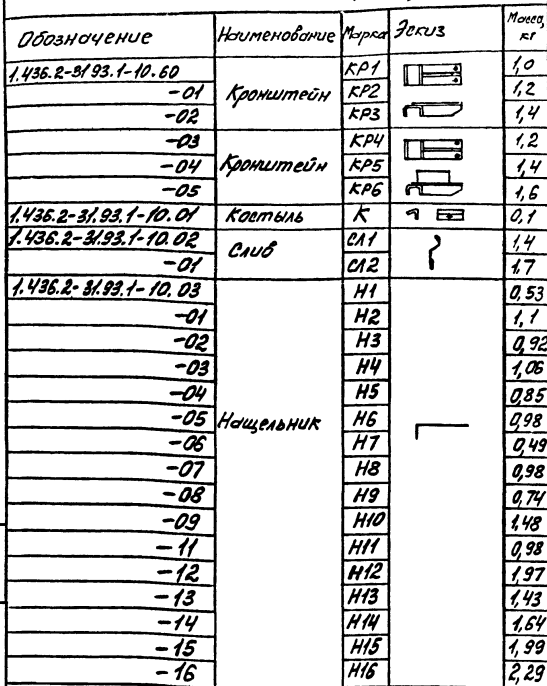 Обозначение Наименование Марка Эскиз Масса, кг
1.436.2-31.93.1-10.60 Кронштейн КР1 1,0
-01 КР2 1,2
-02 КР3 1,4
-03 Кронштейн КР4 1,2
-04 КР5 1,4
-05 КР6 1,6
1.436.2-31.93.1-10.01 Костыль К 0,1
1.436.2-31.93.1-10.02 Слив СЛ1 1,4
-01 СЛ2 1,7
1.436.2-31.93.1-10.03 Нащельник Н1 0,53
-01 Н2 1,1
-02 Н3 0,92
-03 Н4 1,06
-04 Н5 0,85
-05 Н6 0,98
-06 Н7 0,49
-07 Н8 0,98
-08 Н9 0,74
-09 Н10 1,48
-11 Н11 0,98
-12 Н12 1,97
-13 Н13 1,43
-14 Н14 1,64
-15 Н15 1,99
-16 Н16 2,29